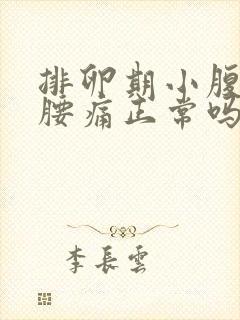 排卵期小腹
腰痛正常吗
李長雲